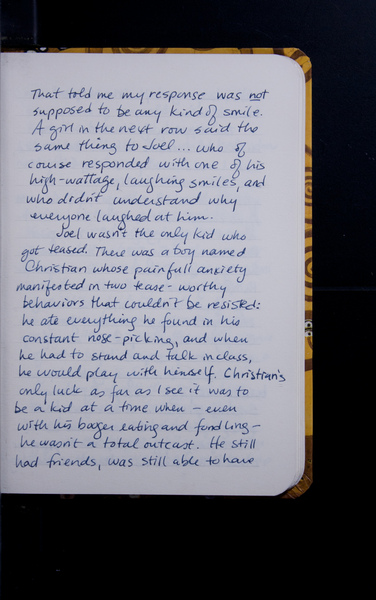 That told me my response was not
supposed to be any kind of smile.
A girl in the next row said the
same thing to Joel... who of
course responded with one of his
high-wattage, laughing smiles, and
who didn't understand why
everyone laughed at him.
Joel wasn't the only kid who
got teased. There was a boy named
Christian whose painfull anxiety
manifested in two tease-worthy
behaviors that couldn't be resisted:
he ate everything he found in his
constant nose-picking, and when
he had to stand and talk in class,
he would play with himself. Christian's
only luck as far as I see it was to
be a kid at a time when - even
with his booger eating and fondling -
he wasn't a total outcast. He still
had friends, was still able to have